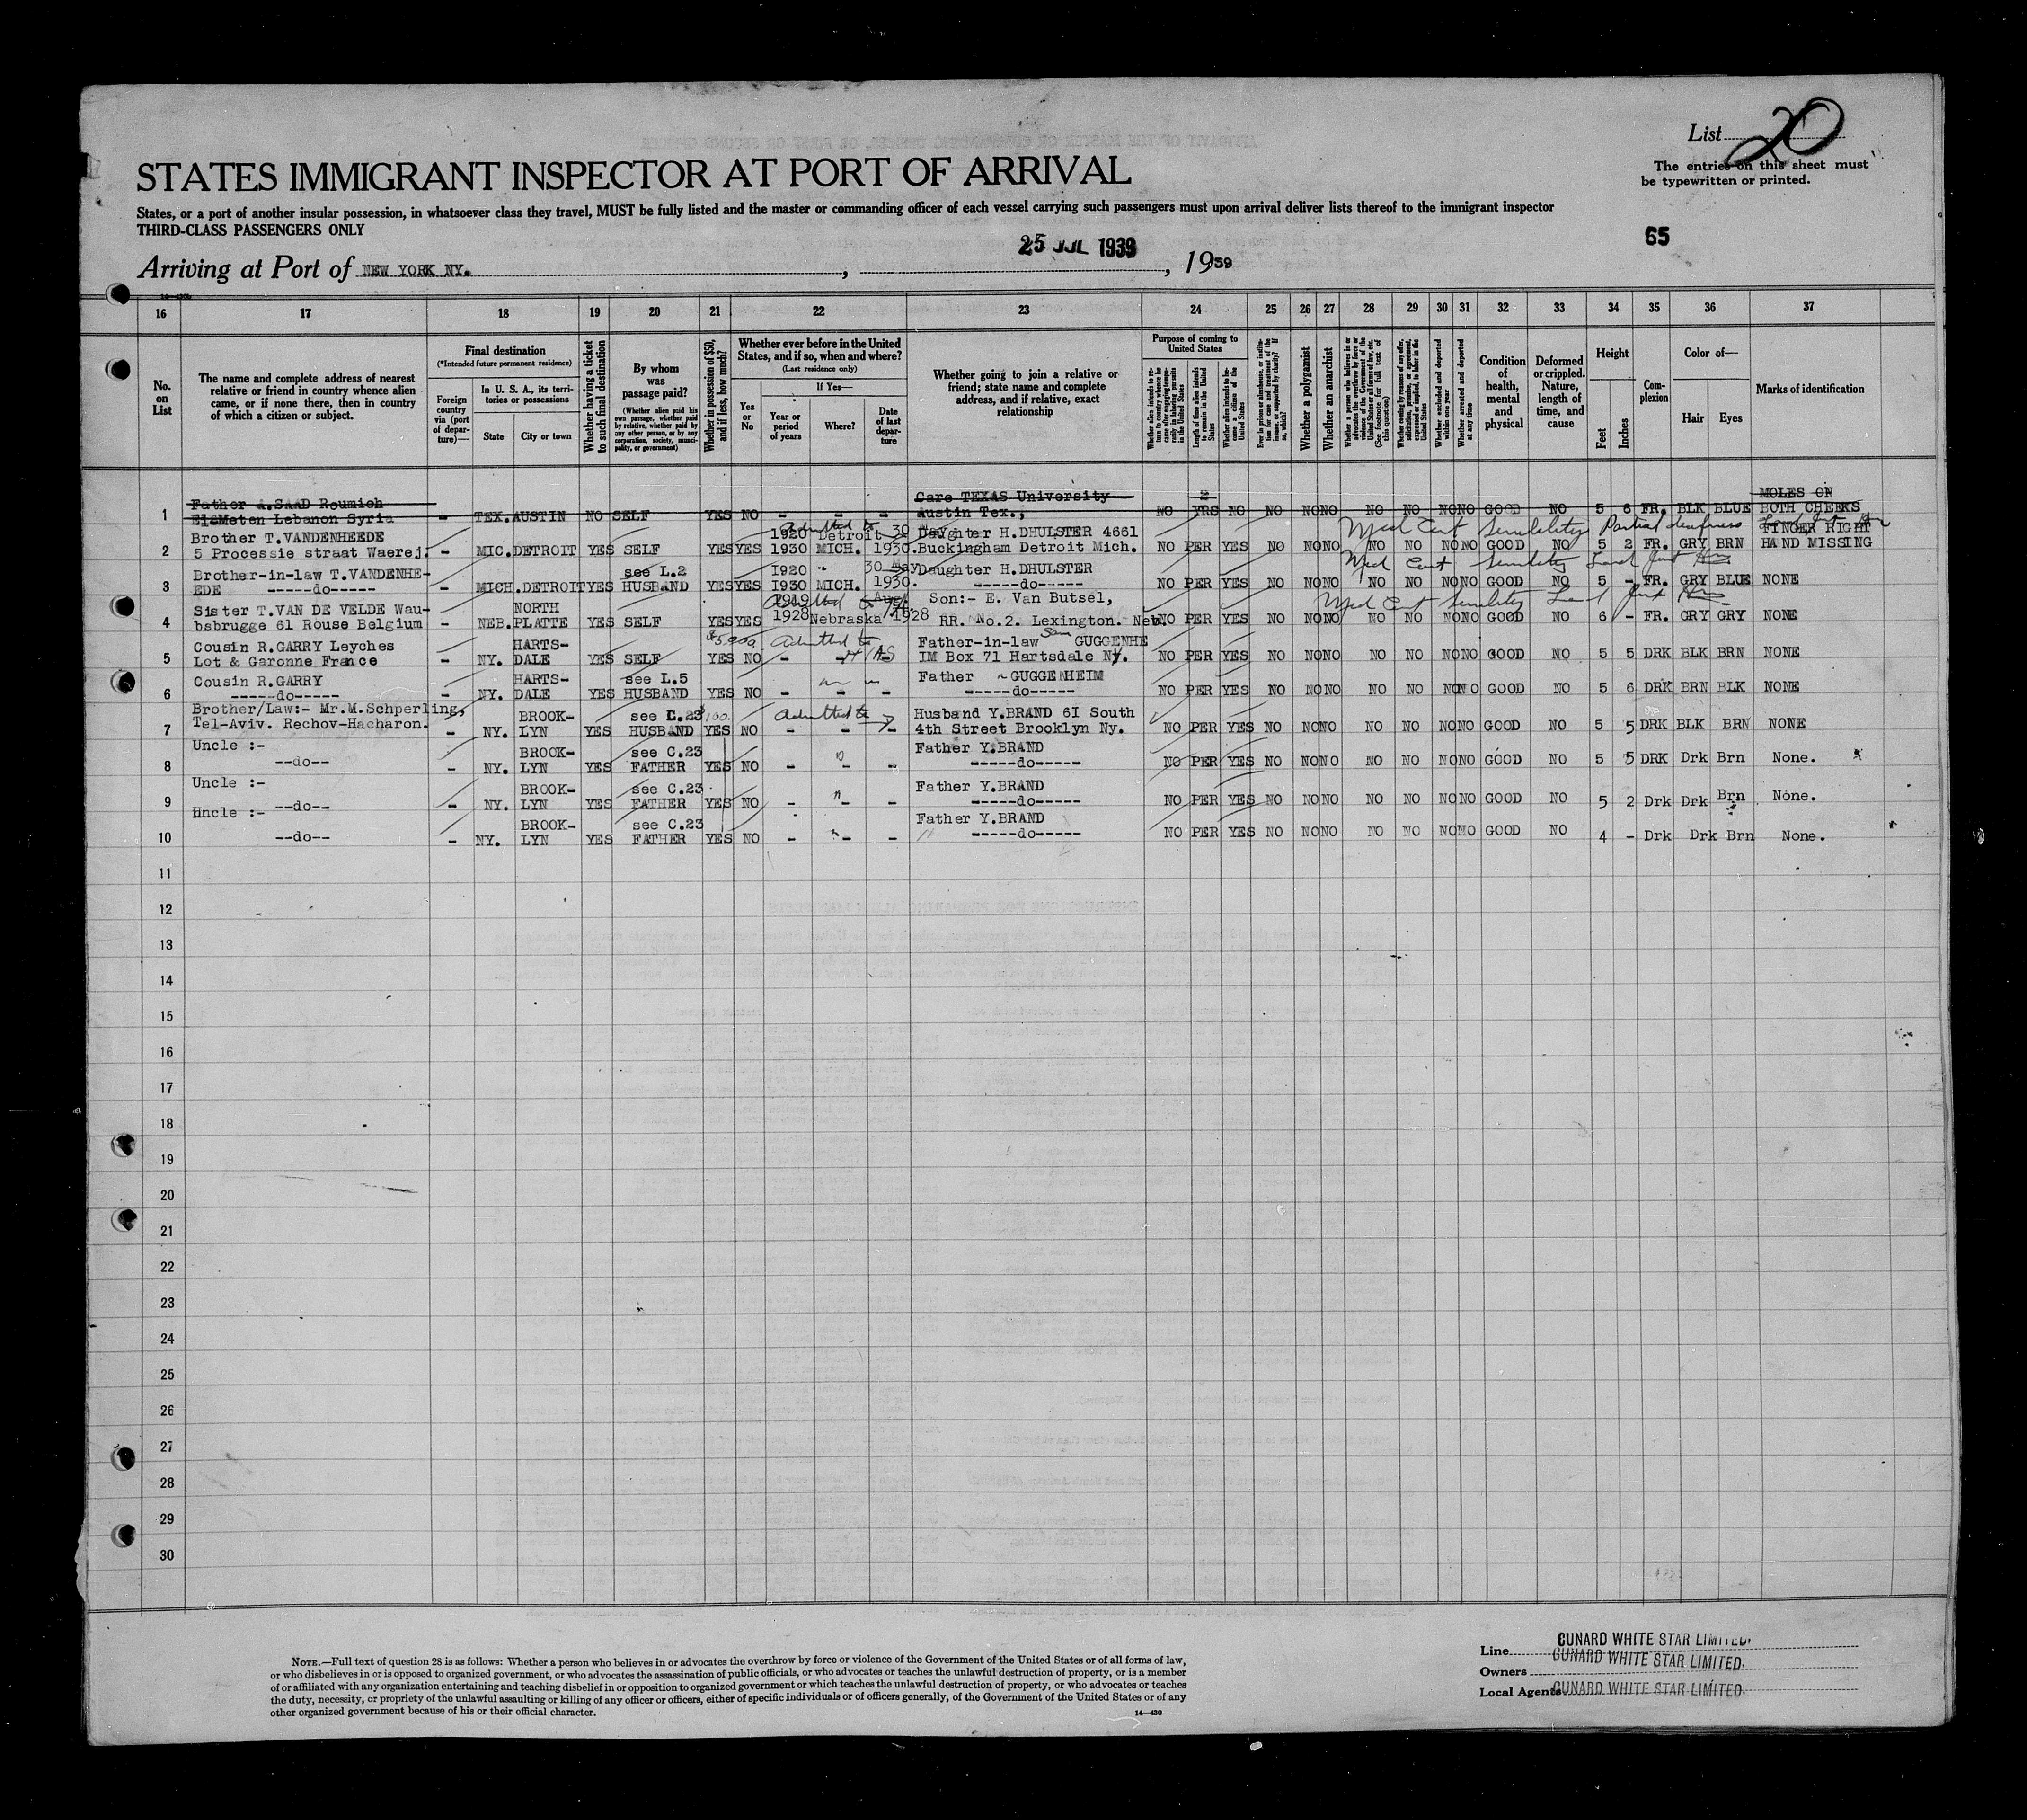 List 20
The entries on this sheet must
be typewritten or printed.
STATES IMMIGRANT INSPECTOR AT PORT OF ARRIVAL
States, or a port of another insular possession, in whatsoever class they travel, MUST be fully listed and the master or commanding officer of each vessel carrying such passengers must upon arrival deliver lists thereof to the immigrant inspector
THIRD-CLASS PASSENGERS ONLY
65
25 JUL 1939
Arriving at Port of NEW YORK NY. , , 1939
16 17 18 19 20 21 22 23 24 25 26 27 28 29 30 31 32 33 34 35 36 37
No. on List
The name and complete address of nearest relative or friend in country whence alien came, or if none there, then in country of which a citizen or subject.
Final destination
(*Intended future permanent residence)
Foreign country via (port of departure)—
In U. S. A., its territories or possessions
State
City or town
Whether having a ticket to such final destination
By whom was passage paid?
(Whether alien paid his own passage, whether paid by relative, whether paid by any other person, or by any corporation, society, municipality, or government)
Whether in possession of $50, and if less, how much?
Whether ever before in the United States, and if so, when and where?
(Last residence only)
Yes or No
If Yes—
Year or period of years
Where?
Date of last departure
Whether going to join a relative or friend; state name and complete address, and if relative, exact relationship
Purpose of coming to United States
Length of time alien intends to remain in the United States
Whether alien intends to become a citizen of the United States
Whether a polygamist
Whether an anarchist
Whether excluded and deported within one year
Whether arrested and deported at any time
Condition of health, mental and physical
Deformed or crippled. Nature, length of time, and cause
Height
Feet
Inches
Complexion
Color of—
Hair
Eyes
Marks of identification
Father A.SAAD Roumich Care TEXAS University 2 MOLES ON
1 ElsMeten Lebanon Syria - TEX. AUSTIN NO SELF YES NO - - - Austin Tex., NO YRS NO NO NO NO NO NO NO NO GOOD NO 5 6 FR. BLK BLUE BOTH CHEEKS
Brother T.VANDENHEEDE 1920 Detroit 30 Daughter H.DHULSTER 4661 Med Cert Senility Partial deafness FINGER RIGHT
2 5 Processie straat Waerej. - MIC. DETROIT YES SELF YES YES 1930 MICH. 1930. Buckingham Detroit Mich. NO PER YES NO NO NO NO NO NO NO GOOD NO 5 2 FR. GRY BRN HAND MISSING
Brother-in-law T.VANDENHE- see L.2 1920 " 30 May Daughter H.DHULSTER Med Cert Senility
3 EDE -----do----- - MICH. DETROIT YES HUSBAND YES YES 1930 MICH. 1930. -----do----- NO PER YES NO NO NO NO NO NO NO GOOD NO 5 - FR. GRY BLUE NONE
Sister T.VAN DE VELDE Wau- NORTH 1919 Son:- E. Van Butsel, Med Cert Senility
4 bsbrugge 61 Rouse Belgium - NEB. PLATTE YES SELF YES YES 1928 Nebraska 1928 RR. No.2. Lexington. Neb. NO PER YES NO NO NO NO NO NO NO GOOD NO 6 - FR. GRY GRY NONE
Cousin R.GARRY Leyches HARTS- $5000 Admitted to Father-in-law Sam GUGGENHE
5 Lot & Garonne France - NY. DALE YES SELF YES NO - - - IM Box 71 Hartsdale Ny. NO PER YES NO NO NO NO NO NO NO GOOD NO 5 5 DRK BLK BRN NONE
Cousin R.GARRY HARTS- see L.5 Father ~GUGGENHEIM
6 -----do----- - NY. DALE YES HUSBAND YES NO - - - -----do----- NO PER YES NO NO NO NO NO NO NO GOOD NO 5 6 DRK BRN BLK NONE
Brother/Law:- Mr.M.Schperling, BROOK- see C.23 100. Admitted to Husband Y.BRAND 6I South
7 Tel-Aviv. Rechov-Hacharon. - NY. LYN YES HUSBAND YES NO - - - 4th Street Brooklyn Ny. NO PER YES NO NO NO NO NO NO NO GOOD NO 5 5 DRK BLK BRN NONE
Uncle :- BROOK- see C.23 Father Y.BRAND
8 --do-- - NY. LYN YES FATHER YES NO - - - -----do----- NO PER YES NO NO NO NO NO NO NO GOOD NO 5 5 DRK Drk Brn None.
Uncle :- BROOK- see C.23 Father Y.BRAND
9 --do-- - NY. LYN YES FATHER YES NO - - - -----do----- NO PER YES NO NO NO NO NO NO NO GOOD NO 5 2 Drk Drk Brn None.
Uncle :- BROOK- see C.23 Father Y.BRAND
10 --do-- - NY. LYN YES FATHER YES NO - - - -----do----- NO PER YES NO NO NO NO NO NO NO GOOD NO 4 - Drk Drk Brn None.
11
12
13
14
15
16
17
18
19
20
21
22
23
24
25
26
27
28
29
30
NOTE.—Full text of question 28 is as follows: Whether a person who believes in or advocates the overthrow by force or violence of the Government of the United States or of all forms of law,
or who disbelieves in or is opposed to organized government, or who advocates the assassination of public officials, or who advocates or teaches the unlawful destruction of property, or is a member
of or affiliated with any organization entertaining and teaching disbelief in or opposition to organized government or which teaches the unlawful destruction of property, or who advocates or teaches
the duty, necessity, or propriety of the unlawful assaulting or killing of any officer or officers, either of specific individuals or of officers generally, of the Government of the United States or of any
other organized government because of his or their official character.
14—430
Line CUNARD WHITE STAR LIMITED.
Owners CUNARD WHITE STAR LIMITED.
Local Agents CUNARD WHITE STAR LIMITED.